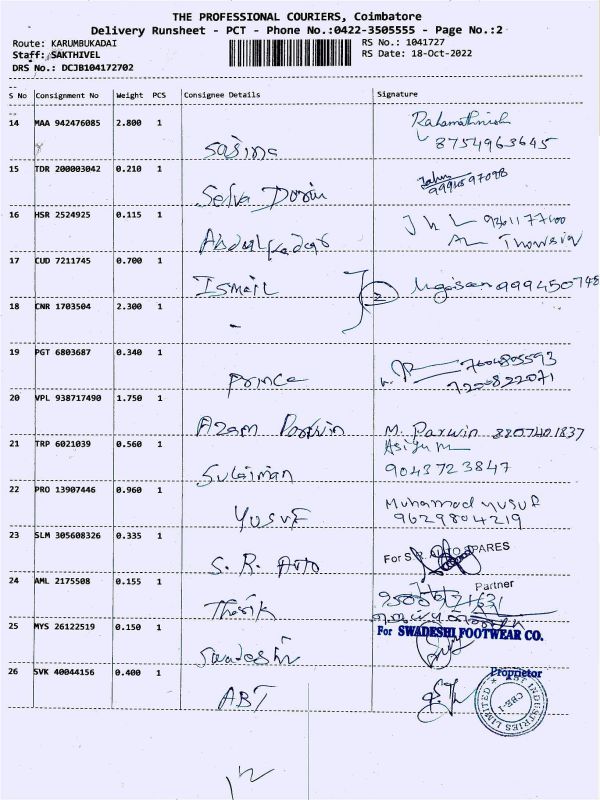 THE PROFESSIONAL COURIERS, Coimbatore
Delivery Runsheet - PCT - Phone No.:0422-3505555 - Page No.:2
Route: KARUMBUKADAI RS No.: 1041727
Staff: SAKTHIVEL RS Date: 18-Oct-2022
DRS No.: DCJB104172702
S No Consignment No Weight PCS Consignee Details Signature
14 MAA 942476085 2.800 1
8754963645
Sasina
15 TDR 200003042 0.210 1
Selva
16 HSR 2524925 0.115 1
Abdulkadar
17 CUD 7211745 0.700 1
Ismail 2
18 CNR 1703504 2.300 1
-
19 PGT 6803687 0.340 1
Prince
20 VPL 938717490 1.750 1
Azam M. Parwin 8807401837
21 TRP 6021039 0.560 1
Sulaiman 9043723847
22 PRO 13907446 0.960 1
Yusuf Muhamad yusuf
9629804219
23 SLM 305608326 0.335 1
For S.R. AUTO SPARES
S. R. Auto
24 AML 2175508 0.155 1 Partner
Tharik
25 MYS 26122519 0.150 1 For SWADESHI FOOTWEAR CO.
Swadeshi
26 SVK 40044156 0.400 1 Proprietor
ABT
ABT INDUSTRIES LIMITED
CBE-1